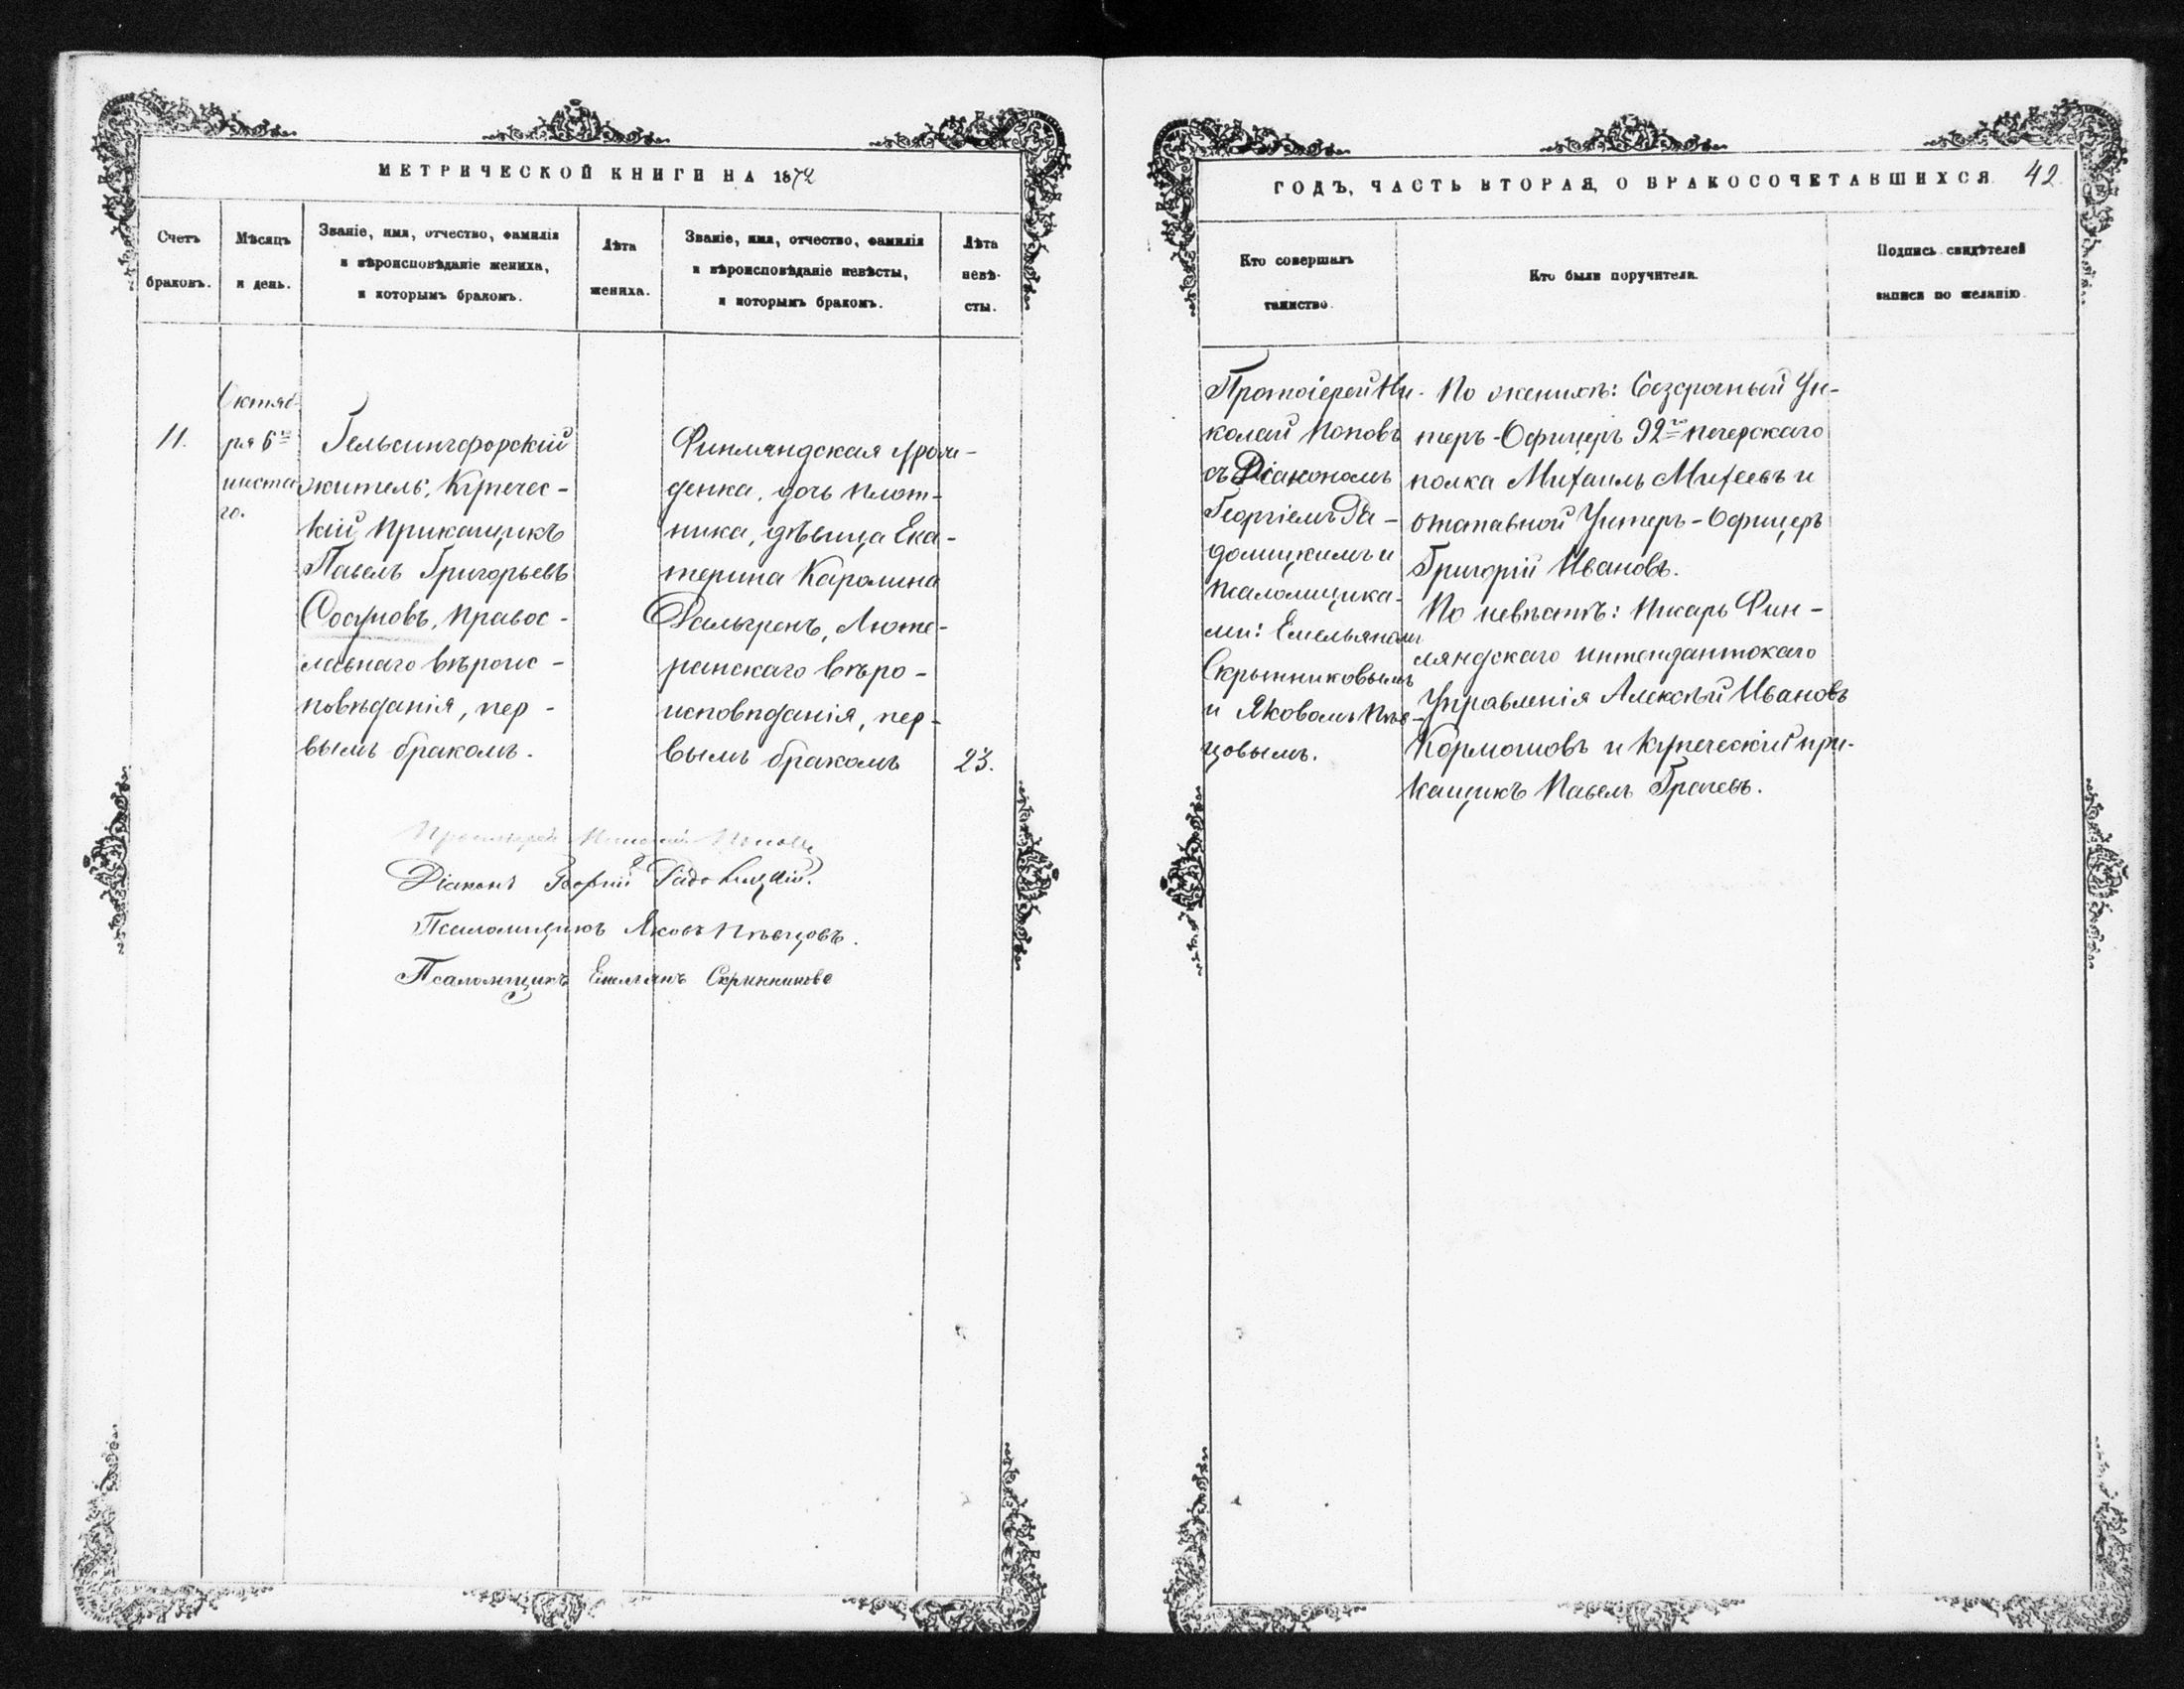 МЕТРИЧЕСКОЙ КНИГИ НА 1872
Счетъ
браковъ.
Мѣсяцъ
и день.
Званіе, имя, отчество, фамилія
и вѣроисповѣданіе жениха,
и которымъ бракомъ.
Лѣта
жениха.
Званіе, имя, отчество, фамилія
и вѣроисповѣданіе невѣсты,
и которымъ бракомъ.
Лѣта
невѣ-
сты.
11.
Октяб-
ря 6го
шеста
го.
Гельсингфорскій
житель, Купечес-
кій Прикащикъ
Павелъ Григорьевъ
Сосуновъ, Правос-
лавнаго вѣроис-
повѣданія, пер-
вымъ бракомъ.
Финляндская уро-
денка, дочь Плот-
ника, дѣвица Ека-
терина Каролина
Дальгренъ, Люте-
ранскаго вѣро-
исповѣданія, пер-
вымъ бракомъ
23.
Протоіерей Николай Поповъ
Діаконъ Георгій Радовицкій.
Псаломщикъ Яковъ Пѣвцовъ.
Псаломщикъ Емельянъ Скрынниковъ
ГОДЪ, ЧАСТЬ ВТОРАЯ, О БРАКОСОЧЕТАВШИХСЯ
42
Кто совершалъ
таинство.
Кто были поручители.
Подпись свидѣтелей
записи по желанію.
Протоіерей Ни-
колай Поповъ
съ Діакономъ
Георгіемъ Ра-
домицкимъ и
Псаломщика-
ми: Емельяномъ
Скрынниковымъ
и Яковомъ Пѣв-
цовымъ.
По женихѣ: безсрочный Ун-
теръ-Офицеръ 92го печерскаго
полка Михаилъ Михеевъ и
отставной Унтеръ-Офицеръ
Григорій Ивановъ.
По невѣстѣ: Писарь Фин-
ляндскаго интендантскаго
Управленія Алексѣй Ивановъ
Кормошовъ и купеческій при-
кащикъ Павелъ Грачевъ.